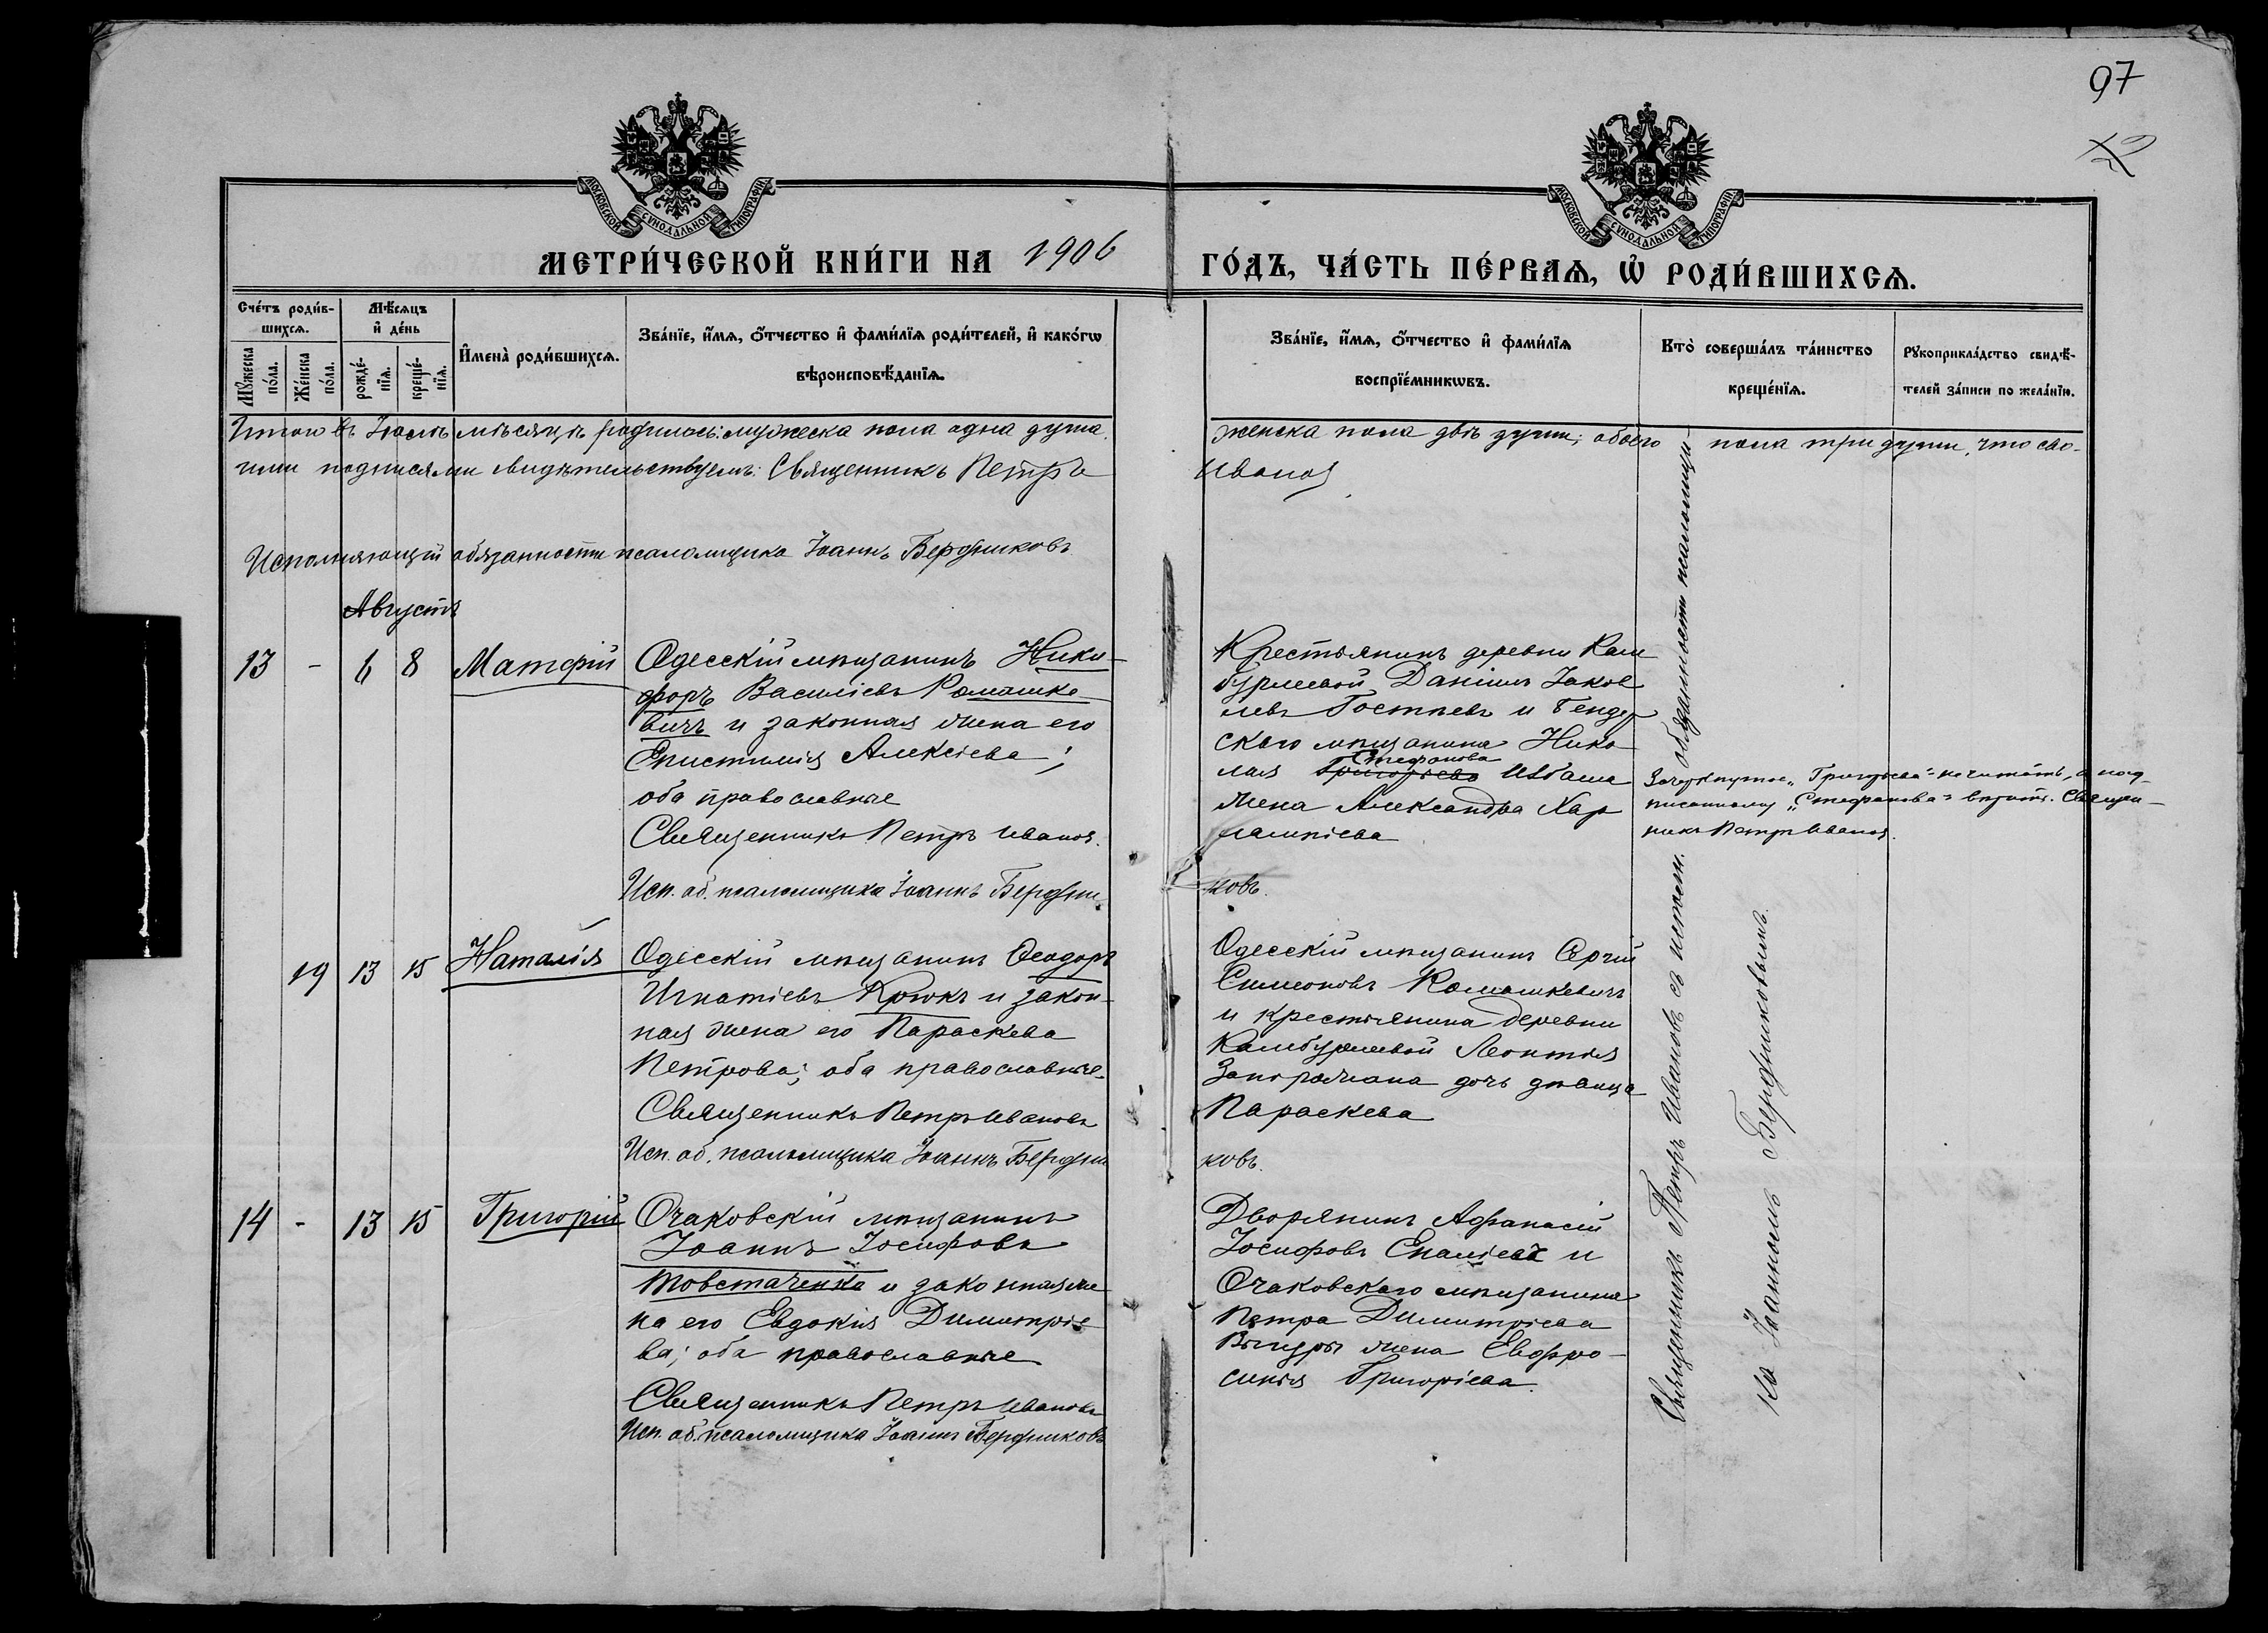 97
МОСКОВСКОЙ СѴНОДАЛЬНОЙ ТИПОГРАФІИ
МОСКОВСКОЙ СѴНОДАЛЬНОЙ ТИПОГРАФІИ
МЕТРИ́ЧЕСКОЙ КНИ́ГИ НА 1906 ГО́ДЪ, ЧА́СТЬ ПЕ́РВАѦ, Ѡ҆ РОДИ́ВШИХСѦ.
Сче́тъ роди́в-
шихсѧ.
Мꙋ́жеска
по́ла.
Же́нска
по́ла.
Мѣ́сѧцъ
и҆ де́нь
рожде́-
нїѧ.
креще́-
нїѧ.
И҆мена̀ роди́вшихсѧ.
Зва́нїе, и҆́мѧ, ѻ҆́тчество и҆ фами́лїѧ роди́телей, и҆ како́гѡ
вѣроисповѣ́данїѧ.
Зва́нїе, и҆́мѧ, ѻ҆́тчество и҆ фами́лїѧ
воспрїе́мникѡвъ.
Кто̀ соверша́лъ та́инство
креще́нїѧ.
Рꙋкоприкла́дство свидѣ́-
телей за́писи по жела́нїю.
Итого въ Іюлѣ мѣсяцѣ родилось: мужеска пола одна душа,
женска пола двѣ души; обоего пола три души, что сво-
ими подписями свидѣтельствуемъ: Священникъ Петръ
Ивановъ
Исполняющій обязанности псаломщика Іоаннъ Бердниковъ
Августъ
13 - 6 8 Матфій
Одесскій мѣщанинъ Ники-
форъ Василіевъ Ромашке
вичъ и законная жена его
Епистимія Алексіева;
оба православные
Священникъ Петръ Ивановъ.
Исп. об. псаломщика Іоаннъ Бердни
ковъ.
Крестьянинъ деревни Кам
бурлеевой Даніилъ Іаков
левъ Гостѣевъ и Бендер
скаго мѣщанина Нико
Стефанова
лая Григорьева Ивбаша
жена Александра Хар
лампіева
Зачеркнутое „Григорьева" не читать, а над-
писанному „Стефанова" вѣрить. Священ-
никъ Петръ Ивановъ.
19 13 15 Наталія
Одесскій мѣщанинъ Ѳеодоръ
Игнатіевъ Крюкъ и закон-
ная жена его Параскева
Петрова; оба православные.
Священникъ Петръ Ивановъ
Исп. об. псаломщика Іоаннъ Бердни
ковъ.
Одесскій мѣщанинъ Сергій
Симеоновъ Ромашкевичъ
и крестьянина деревни
Камбурлеевой Леонтія
Запорожана дочь дѣвица
Параскева
14 - 13 15 Григорій
Очаковскій мѣщанинъ
Іоаннъ Іосифовъ
Товстаченко и законная же
на его Евдокія Димитріе
ва; оба православные
Священникъ Петръ Ивановъ
Исп. об. псаломщика Іоаннъ Бердниковъ
Дворянинъ Афанасій
Іосифовъ и
Очаковскаго мѣщанина
Петра Димитріева
Вигуры жена Евфро-
синія Григоріева.
Священникъ Петръ Ивановъ съ исполн. обязанност псаломщи-
ка Іоанномъ Бердниковымъ.